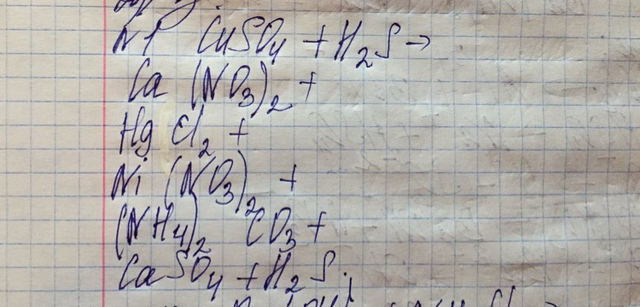 N1 CuSO₄ + H₂S →
Ca (NO₃)₂ +
Hg Cl₂ +
Ni (NO₃)₂ +
(NH₄)₂ CO₃ +
CaSO₄ + H₂S.